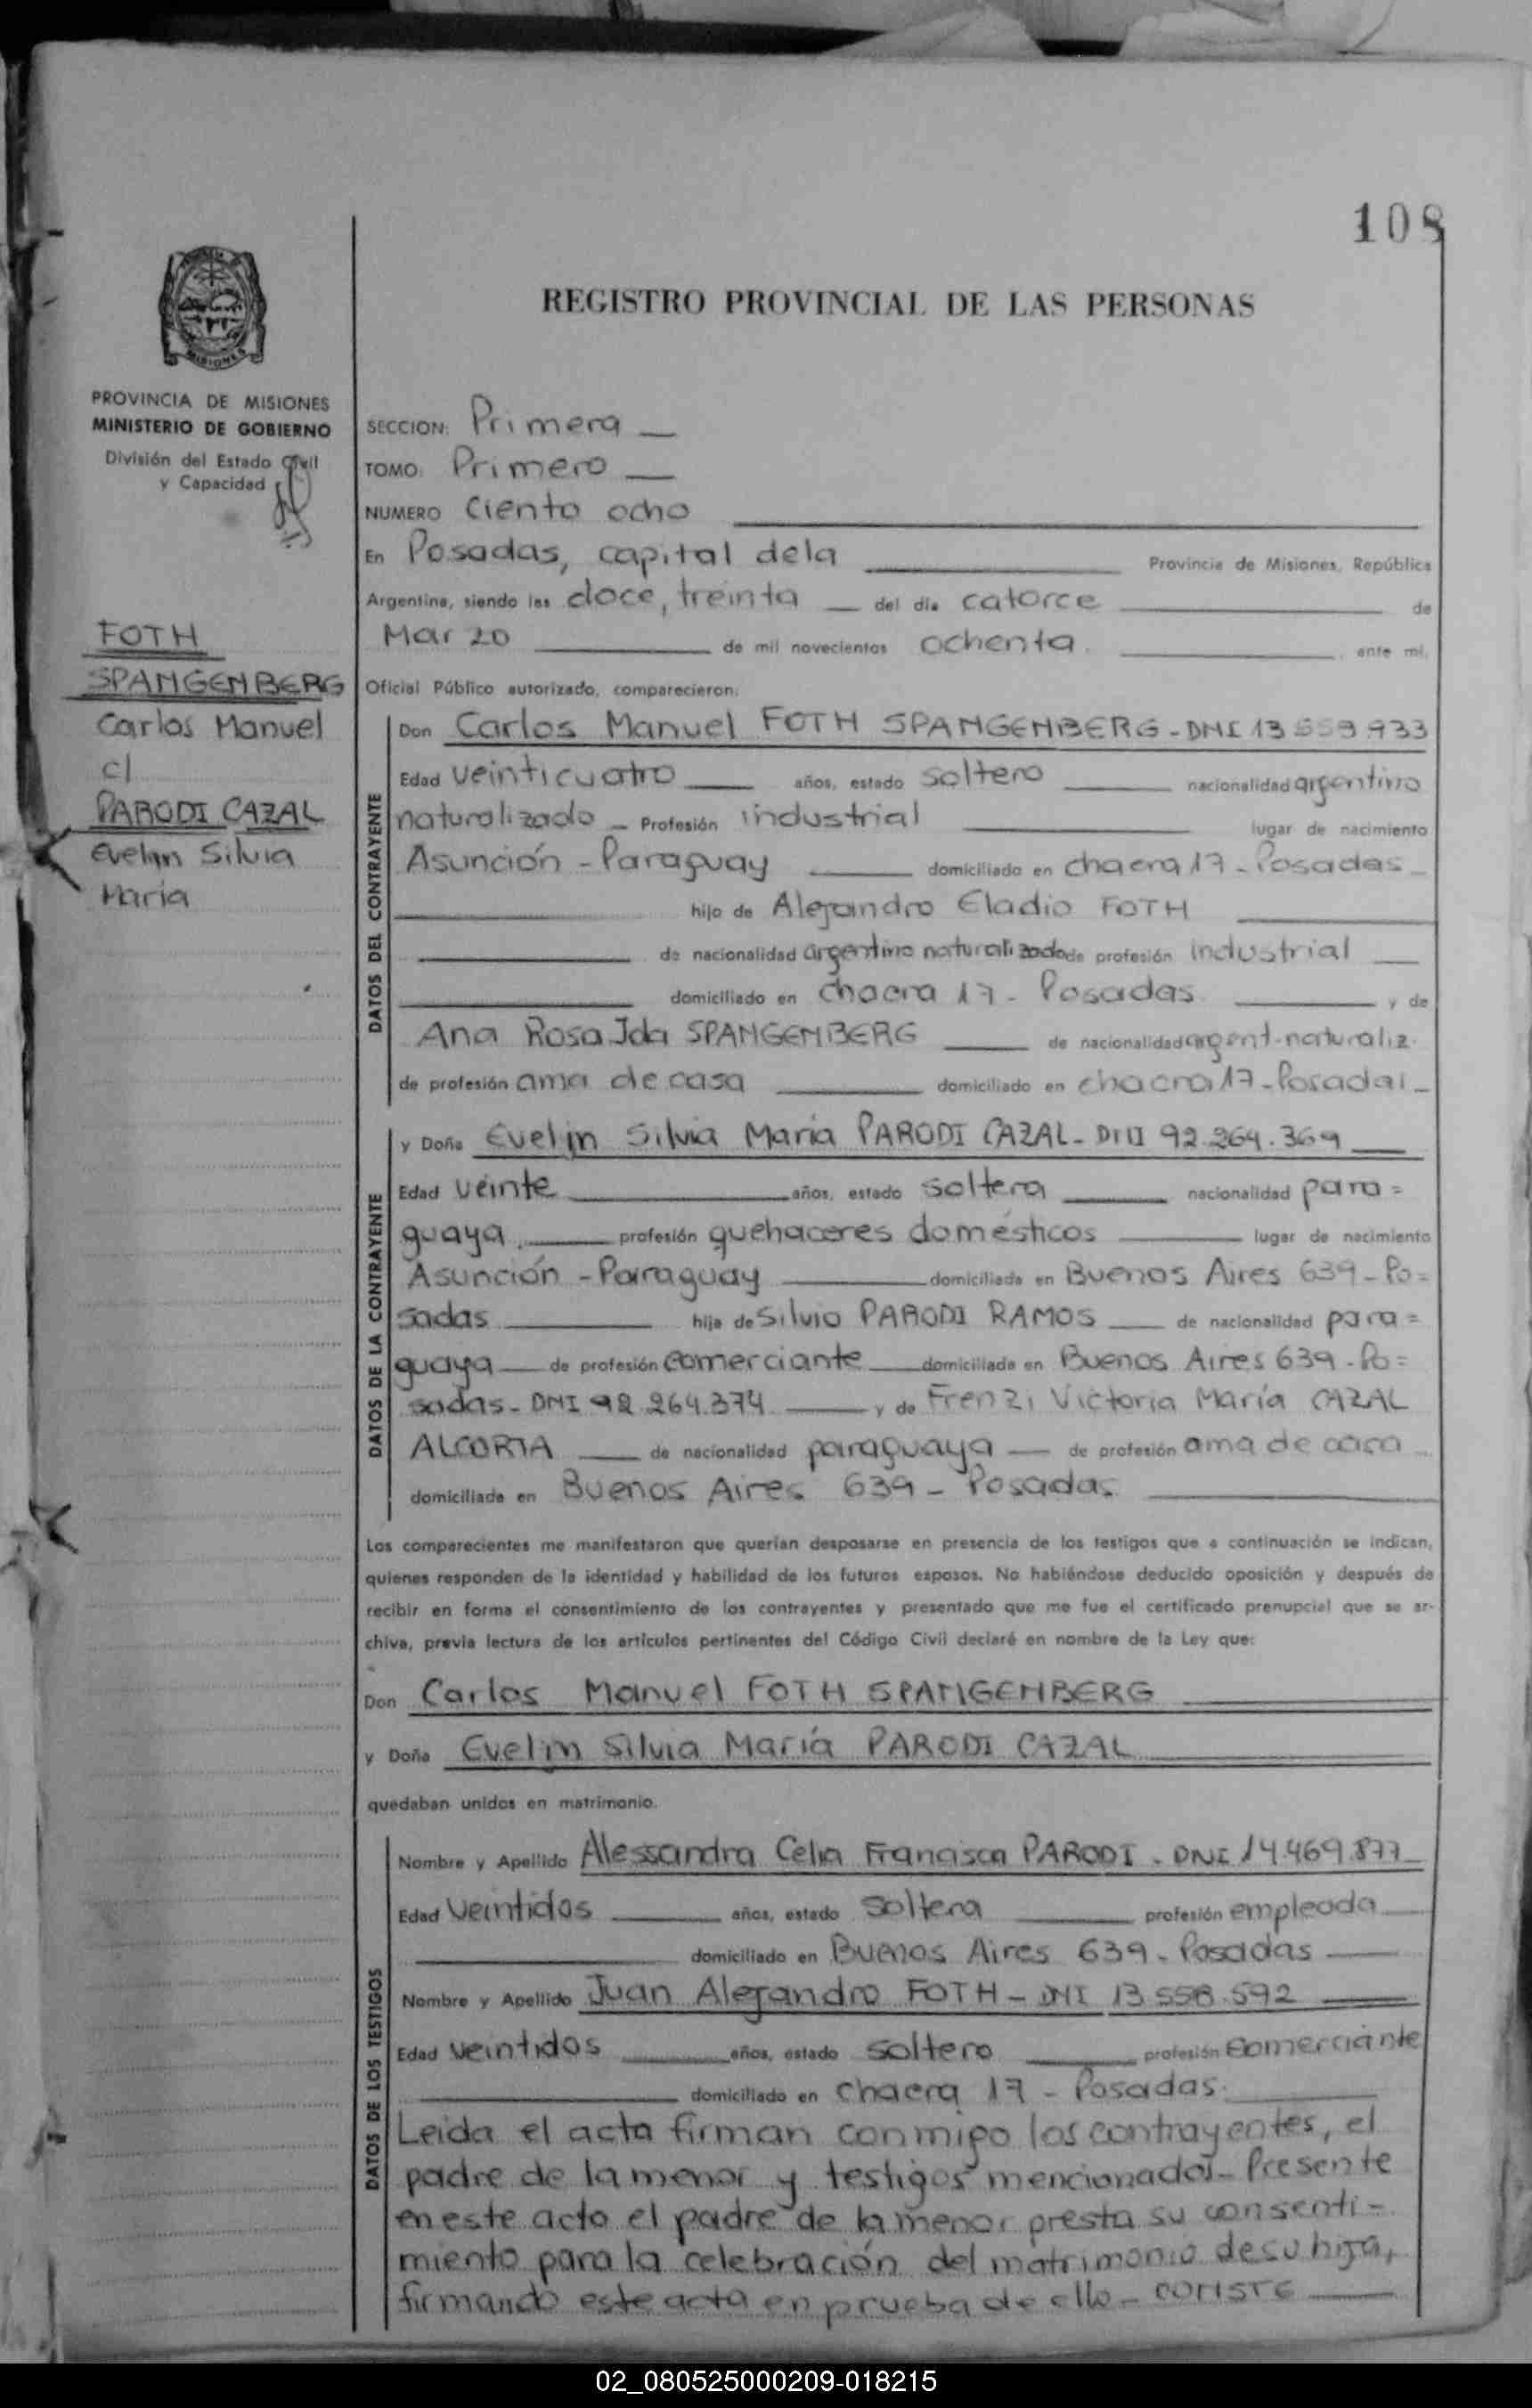 108
REGISTRO PROVINCIAL DE LAS PERSONAS
MISIONES
PROVINCIA DE MISIONES
MINISTERIO DE GOBIERNO
División del Estado Civil
y Capacidad
FOTH
SPANGENBERG
Carlos Manuel
c/
PARODI CAZAL
Evelin Silvia
Maria
SECCION: Primera
TOMO: Primero
NUMERO Ciento ocho
En Posadas, capital dela Provincia de Misiones, República
Argentina, siendo las doce, treinta del día catorce de
Marzo de mil novecientos ochenta. ante mí,
Oficial Público autorizado, comparecieron:
DATOS DEL CONTRAYENTE
Don Carlos Manuel FOTH SPANGENBERG - DNI 13 559 933
Edad veinticuatro años, estado soltero nacionalidad argentino
naturalizado - Profesión industrial lugar de nacimiento
Asunción - Paraguay domiciliado en chacra 17 - Posadas
hijo de Alejandro Eladio FOTH
de nacionalidad argentino naturalizado de profesión industrial
domiciliado en chacra 17 - Posadas y de
Ana Rosa Ida SPANGENBERG de nacionalidad argent. naturaliz.
de profesión ama de casa domiciliado en chacra 17 - Posadas -
DATOS DE LA CONTRAYENTE
y Doña Evelin Silvia Maria PARODI CAZAL - DNI 92.264.369
Edad veinte años, estado soltera nacionalidad para=
guaya. profesión quehaceres domésticos lugar de nacimiento
Asunción - Paraguay domiciliada en Buenos Aires 639 - Po=
sadas hija de Silvio PARODI RAMOS de nacionalidad para=
guaya de profesión comerciante domiciliado en Buenos Aires 639 - Po=
sadas - DNI 92.264.374 y de Frenzi Victoria María CAZAL
ALCORTA de nacionalidad paraguaya de profesión ama de casa
domiciliada en Buenos Aires 639 - Posadas
Los comparecientes me manifestaron que querían desposarse en presencia de los testigos que a continuación se indican,
quienes responden de la identidad y habilidad de los futuros esposos. No habiéndose deducido oposición y después de
recibir en forma el consentimiento de los contrayentes y presentado que me fue el certificado prenupcial que se ar-
chiva, previa lectura de los artículos pertinentes del Código Civil declaré en nombre de la Ley que:
Don Carlos Manuel FOTH SPANGENBERG
y Doña Evelin Silvia María PARODI CAZAL
quedaban unidos en matrimonio.
DATOS DE LOS TESTIGOS
Nombre y Apellido Alessandra Celia Francisca PARODI - DNI 14.469.877
Edad veintidos años, estado soltera profesión empleada
domiciliado en Buenos Aires 639 - Posadas
Nombre y Apellido Juan Alejandro FOTH - DNI 13.558.592
Edad veintidos años, estado soltero profesión comerciante
domiciliado en chacra 17 - Posadas.
Leida el acta firman conmigo los contrayentes, el
padre de la menor y testigos mencionados - Presente
en este acto el padre de la menor presta su consenti-
miento para la celebración del matrimonio de su hija,
firmando este acta en prueba de ello - CONSTE
02_080525000209-018215